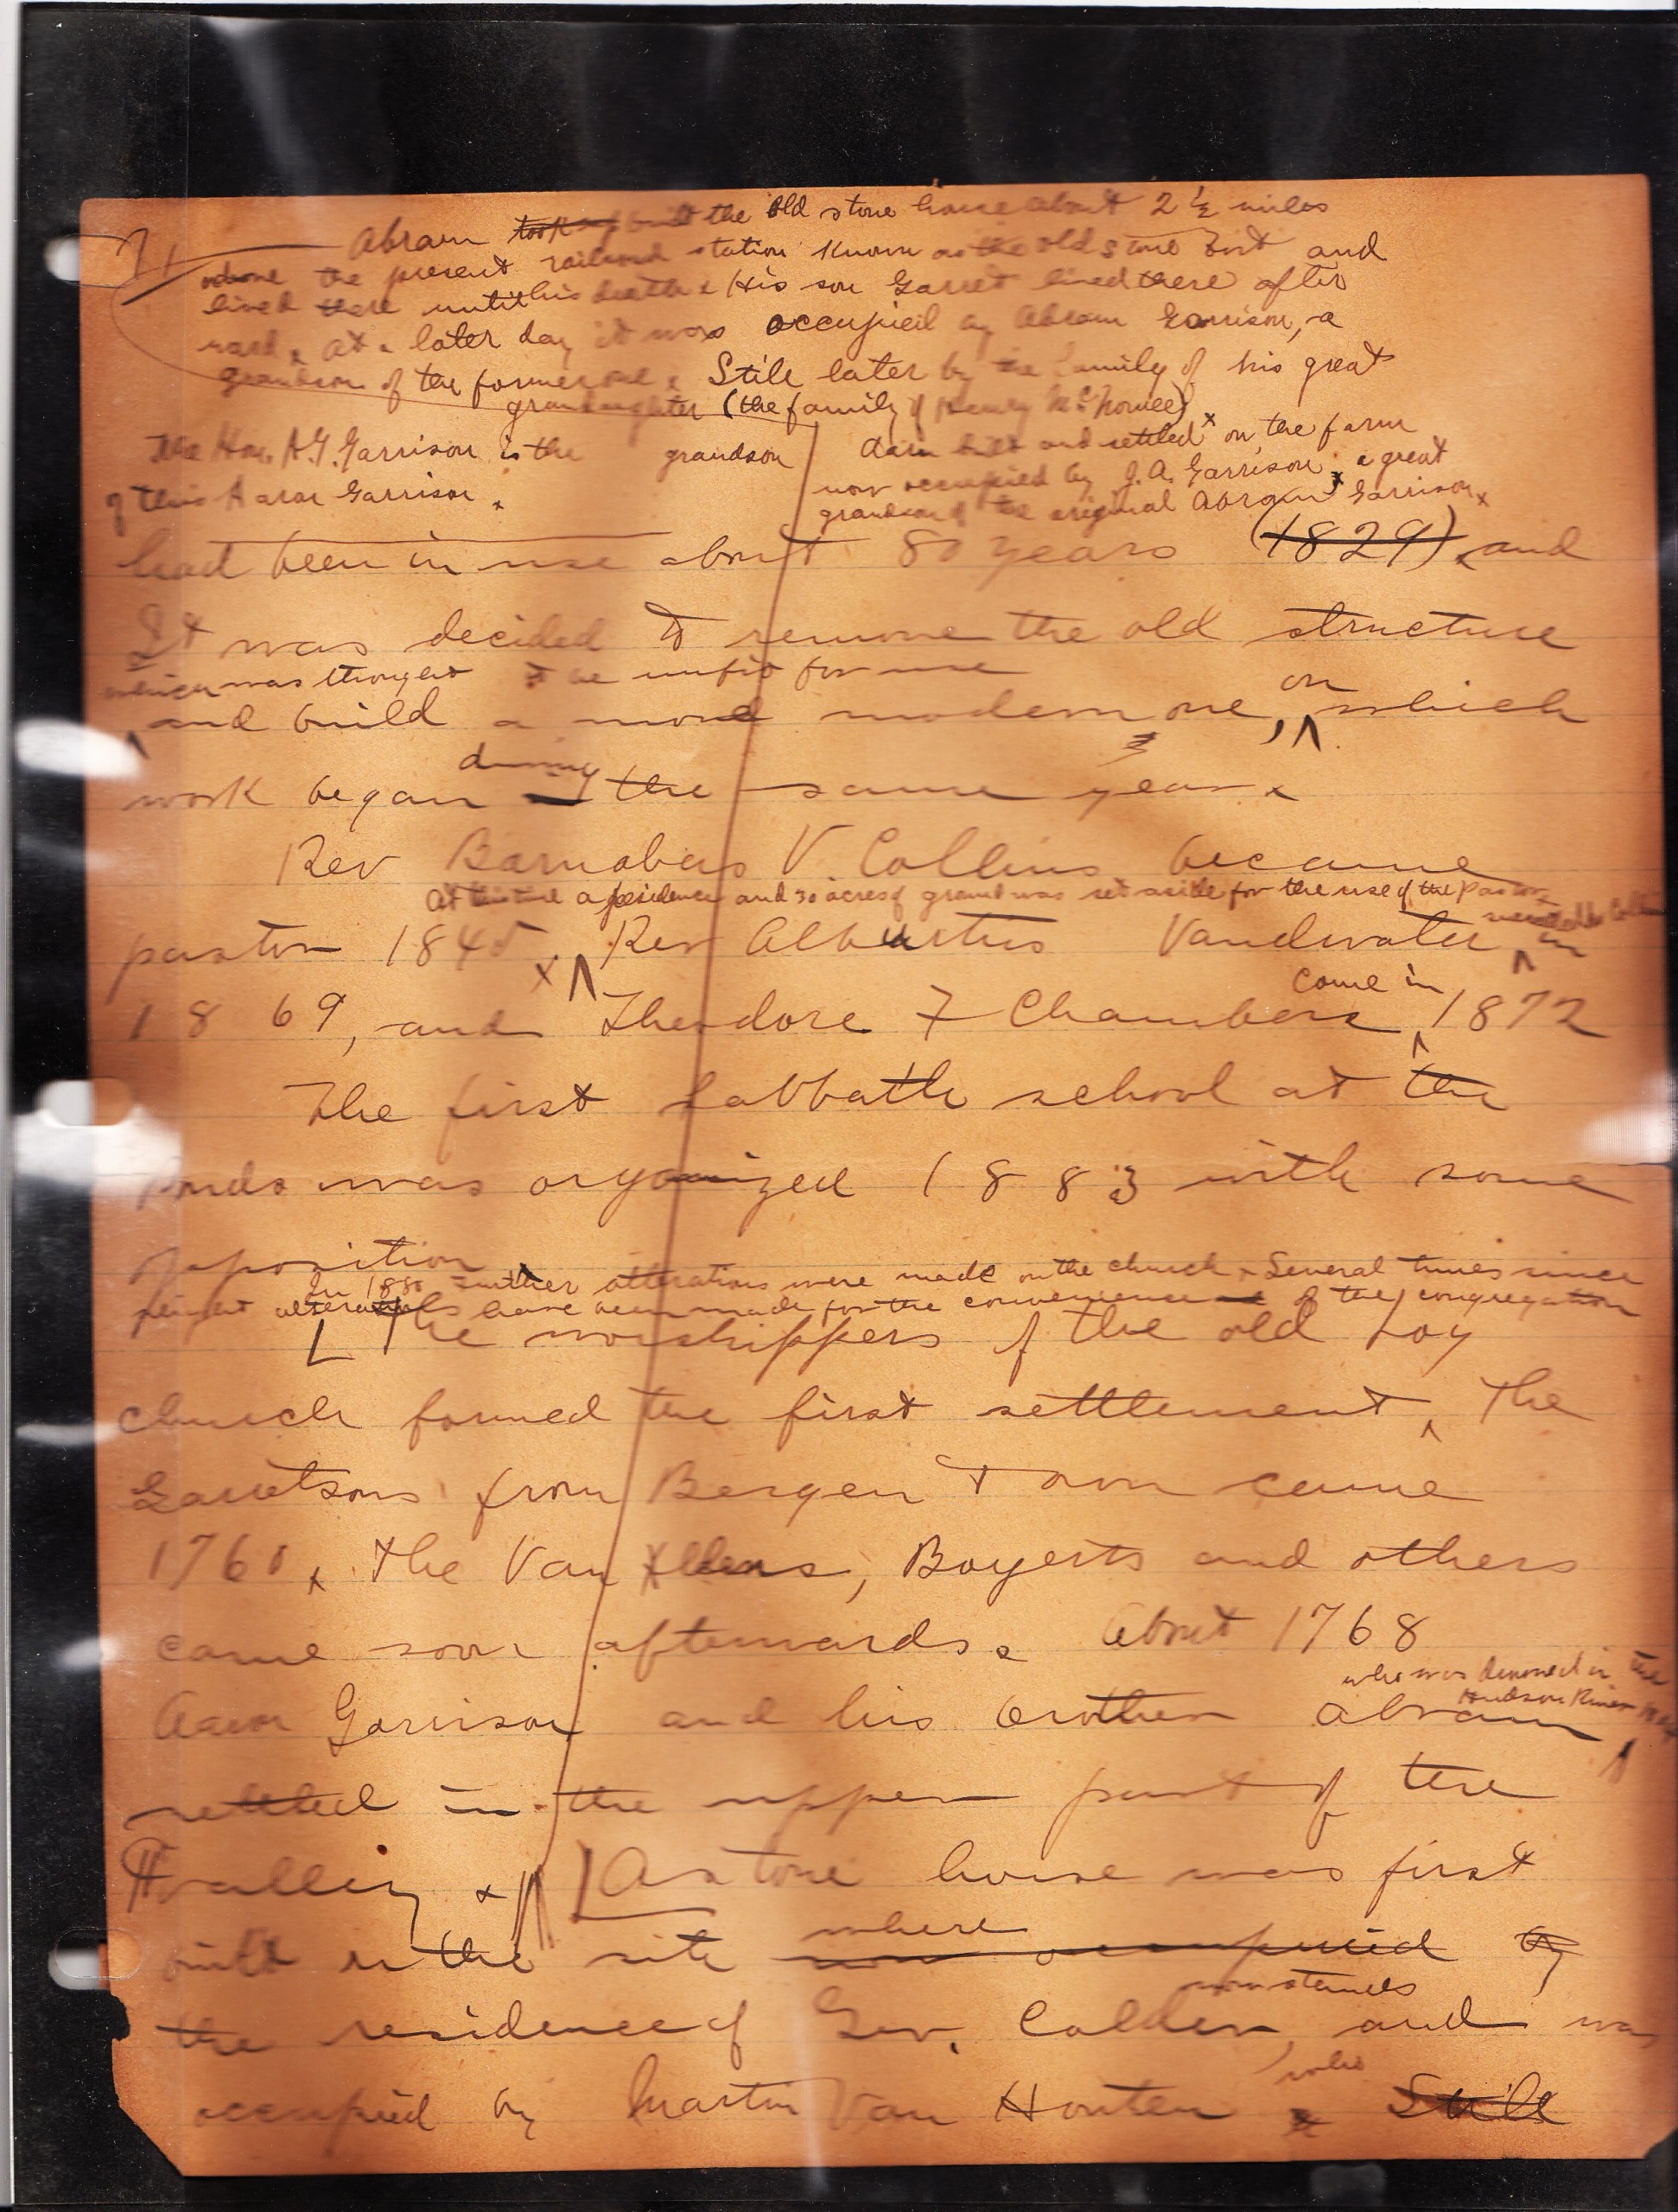 Abram took up built the old stone house about 2 1/2 miles
above the present railroad station known as the old stone and
lived there until his death x His son Garret lived there after
ward x At a later day it was occupied by Abram Garrison, a
grandson of the former one x Still later by the family of his great
grandaughter (the family of Henry
The Hon. A.G. Garrison is the grandson
of this Aaron Garrison x
built and settled on the farm
now occupied by J.A. Garrison x a great
grandson of the original Abram Garrison x
had been in use about 80 years (1829) x and
It was decided to remove the old structure
which was thought to be unfit for use
and build a more modern one, on which
work began during the same year x
Rev Barnabas V. Collins became
At this time a residence and 30 acres of ground was set aside for the use of the Pastor
pastor 1845 x Rev Alburtus Vandwater in
1869, and Theodore F Chambers come in 1872
The first Sabbath school at the
Ponds was organized 1883 with some
opposition
In 1880 further alterations were made on the church x Several times since
alterations have been made for the convenience of the congregation
The worshippers of the old Log
church formed the first settlement, The
Garretsons from Bergen Town came
1760 x The Van Allens, Bogerts and others
came soon afterwards x About 1768
who was drowned in the
Hudson River
Aaron Garrison and his brother Abram
settled in the upper part of the
valley x A stone house was first
built on the site where now occupied by
the residence of Gov. Colden now stands, and was
occupied by Martin Van Houten who x Still